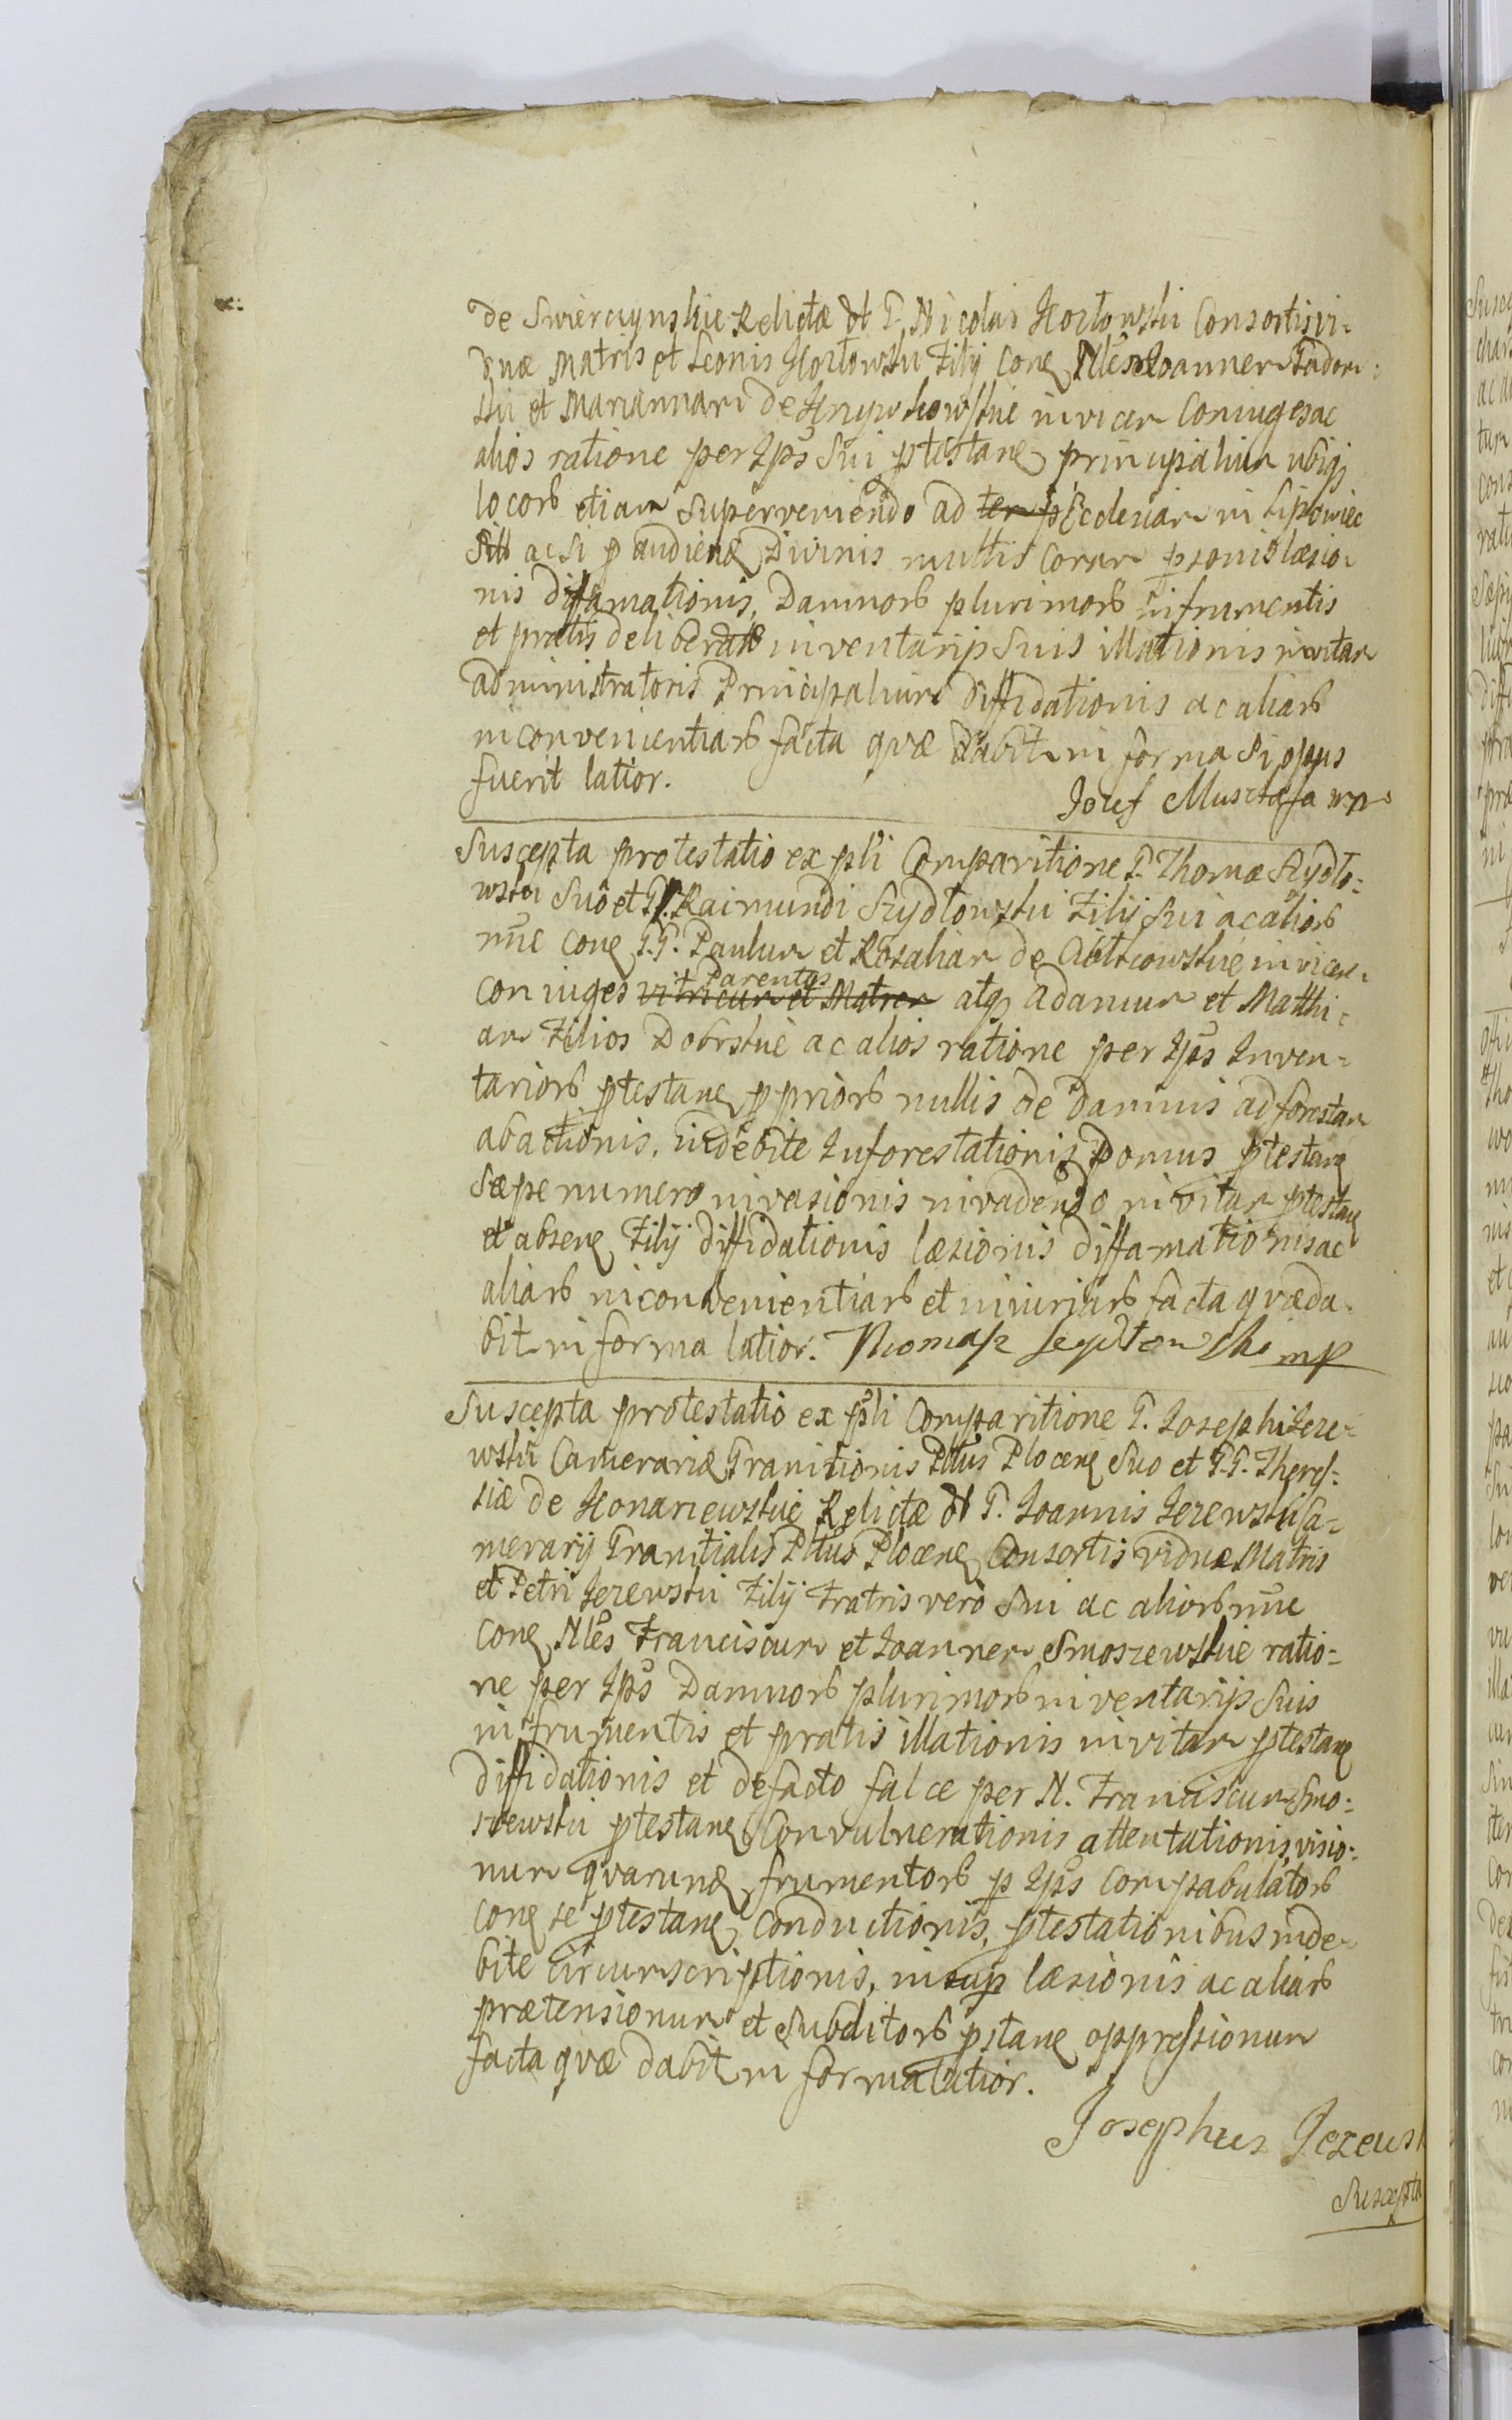 de Swierczynskie Relictæ ol G. Nicolai Kozłowski Consortis vi-
duæ Matris et Leonis Kozłowski Filij conq Nles Joannem Fadow-
ski et Mariannam de invicem Coniuges ac
alios ratione per Ipsos Sui ptestanq principalium ubiq
locorb etiam superveniendo ad Ecclesiam in Lipowiec
Sitt ac si p audienđ Divinis multis coram psonis læsio-
nis diffamationis, Damnorb plurimorb in frumentis
et pratis deliberate inventarijs Suis illationis in vitam
administratoris Principalium diffidationis ac aliarb
inconvenientiarb facta quæ dabit in forma Si opus
fuerit latior.
Jozef Musztafa mp
Suscepta protestatio ex psli Comparitione G. Thomæ Szydło-
wski Suo et G. Raimundi Szydłowski Filij Sui ac aliorb
nne conq G.G. Paulum et Rosaliam de invicem
coniuges Parentes atq Adamum et Matthi-
am Filios Dobrskie ac alios ratione per Ipsos Inven-
tariorb ptestanq ppriorb nullis de damnis ad forestam
abactionis, indebite Inforestationis, Domus ptestanq
Sæpenumero invasionis invadendo in vitam ptestanq
et absenq Filij diffidationis læsionis diffamationis ac
aliarb inconvenientiarb et iniuriarb facta quæ da-
bit in forma latior. Thomasz Szydłowski mp
Suscepta protestatio ex psli Comparitione G. Josephi Jeze-
wski Camerarij Granitionis Pltus Plocenq Suo et G.G. There-
siæ de Konarzewskie Relictæ ol G. Joannis Jezewski Ca-
merarij Granitialis Pltus Plocenq Consortis viduæ Matris
et Petri Jezewski Filij Fratris vero Sui ac aliorb nne
conq Nles Franciscum et Joannem Smoszewskie ratio-
ne per Ipsos Damnorb plurimorb inventarijs Suis
in frumentis et pratis illationis in vitam ptestanq
diffidationis et de facto falce per N. Franciscum Smo-
szewski ptestanq Convulnerationis attentationis, visio-
num quarunđ frumentorb p Ipsos compabulatorb
conq se ptestanq conductionis, ptestationibus inde-
bite circumscriptionis, insup læsionis ac aliarb
prætensionum et Subditorb pstanq oppressionum
facta quæ dabit in forma latior.
Josephus Jezewsk
Suscepta